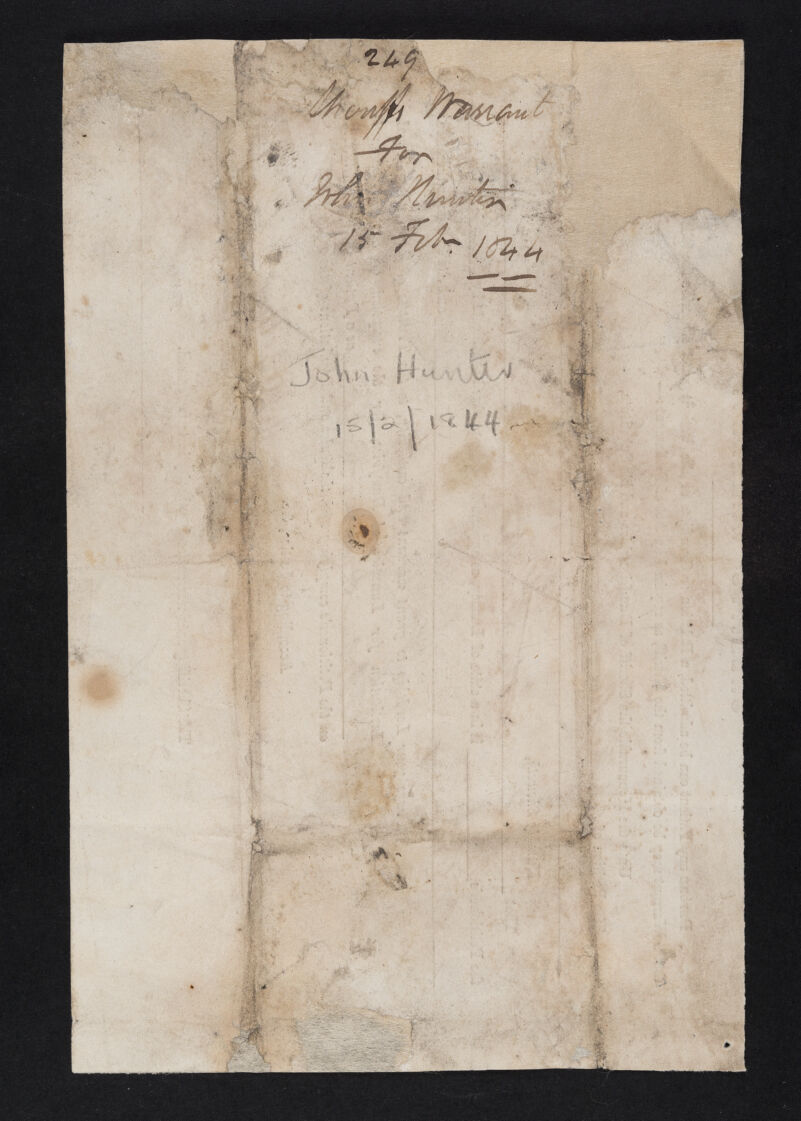 249
Sheriffs Warrant
For
John Hunter
15 Feb. 1844
John Hunter
15/2/1844